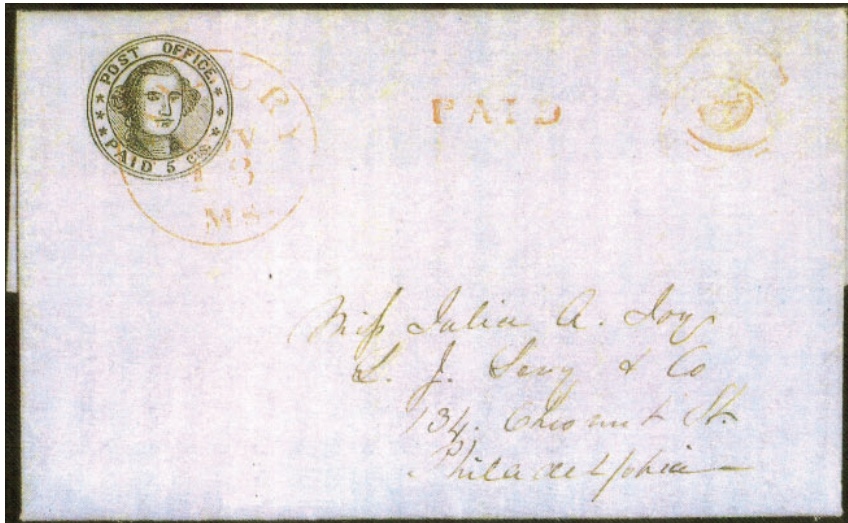 POST OFFICE.
PAID 5 Cts.
BURY
NOV
13
MS.
PAID
5
Miss Julia A. Joy
L. J. Levy & Co
134. Chesnut St.
Philadelphia